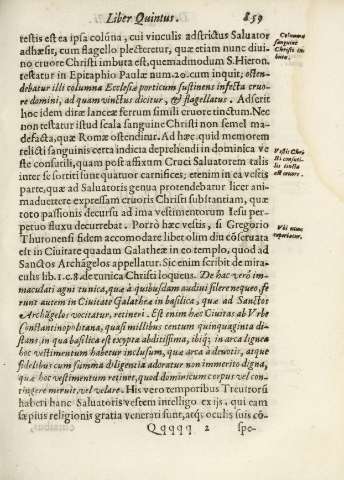 Liber Quintus. 859
testis est ea ipsa colũna, cui vinculis adstrictus Saluator
adhæsit, cum flagello plecteretur, quæ etiam nunc diui-
no cruore Christi imbuta est, quemadmodum S. Hieron.
testatur in Epitaphio Paulæ num. 20. cum inquit; osten-
debatur illi columna Ecclesiæ porticum sustinens infecta cruo-
re domini, ad quam vinctus dicitur, & flagellatus. Adserit
hoc idem diræ lanceæ ferrum simili cruore tinctum. Nec
non testatur istud scala sanguine Christi non semel ma-
defacta, quæ Romæ ostenditur. Ad hæc quid memorem
relicti sanguinis certa indicia deprehendi in dominica ve
ste consutili, quam post affixum Cruci Saluatorem tali
inter se sortiti sunt quatuor carnifices; etenim in ea vestis
parte, quæ ad Saluatoris genua protendebatur licet ani-
maduertere expressam cruoris Christi substantiam, quæ
toto passionis decursu ad ima vestimentorum Iesu per-
petuo fluxu decurrebat. Porrò hæc vestis, si Gregorio
Thuronensi fidem accomodare libet olim diu cõseruata
est in Ciuitate quadam Galatheæ in eo templo, quod ad
Sanctos Archãgelos appellatur. Sic enim scribit de mira-
culis lib. 1. c. 8. de tunica Christi loquens. De hac verò im-
maculati agni tunica, quæ à quibusdam audiui silere nequeo, fe
runt autem in Ciuitate Galatheæ in basilica, quæ ad Sanctos
Archãgelos vocitatur, retineri. Est enim hæc Ciuitas ab Vrbe
Constantinopolitana, quasi millibus centum quinquaginta di-
stans, in qua basilica est exypta abditissima, ibiq; in arca lignea
hoc vestimentum habetur inclusum, quæ arca à deuotis, atque
fidelibus cum summa diligentia adoratur non immerito digna,
quæ hoc vestimentum retinet, quod dominicum corpus vel con-
tingere meruit, vel velare. His vero temporibus Treuirorũ
haberi hanc Saluatoris vestem intelligo ex ijs, qui eam
sæpius religionis gratia venerati sunt, atq; oculis suis cõ-
Qqqqq 2 spe-
Columna
sanguine
Christi im
buta.
Vestis Chri
sti consuti-
lis tincta
est cruore.
Vbi nunc
reperiatur.